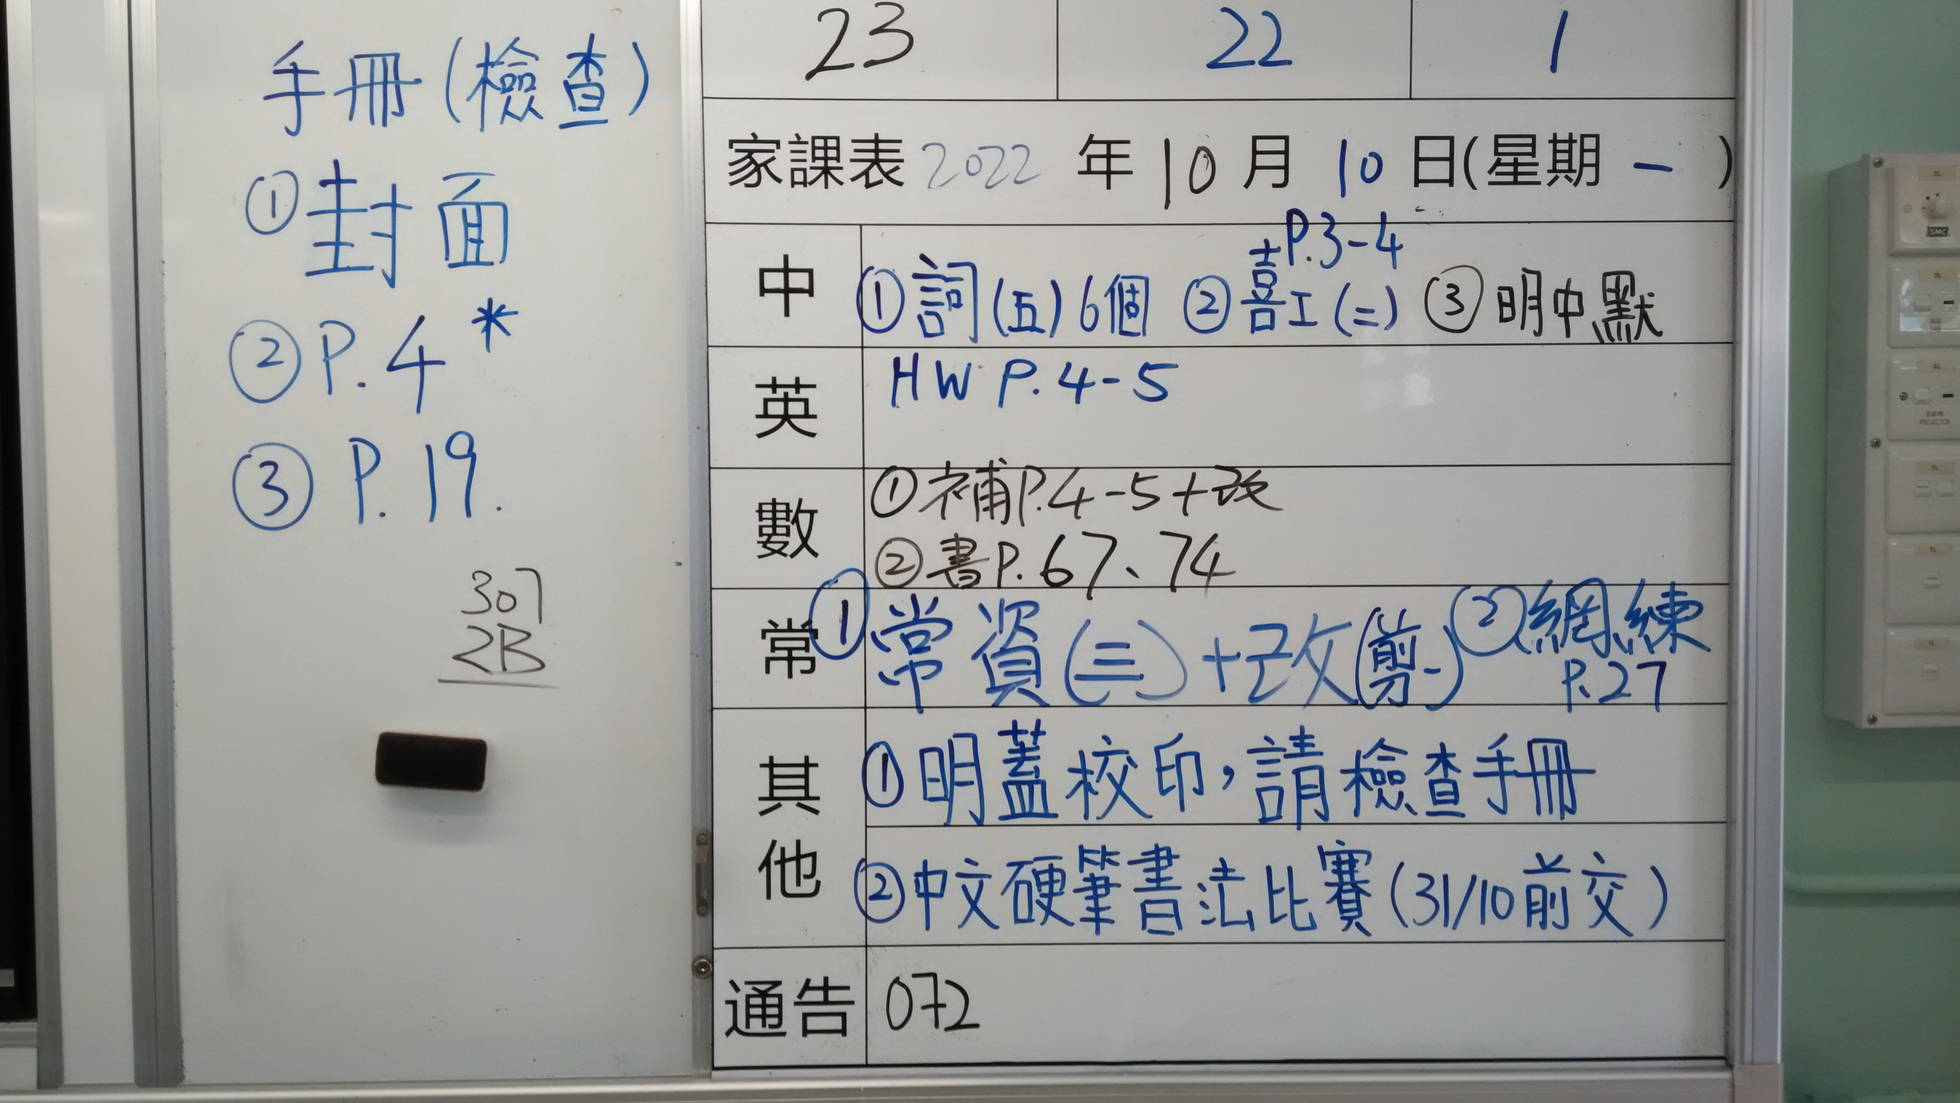 手冊(檢查)
①封面
②P.4*
③P.19.
307
2B
23 22 1
家課表2022年10月10日(星期一)
中 ①詞(五)6個 ②喜工(二)P.3-4 ③明中默
英 HW P.4-5
數 ①補P.4-5+改
②書P.67、74
常 ①常資(三)+改(剪) ②網練
P.27
其他 ①明蓋校印,請檢查手冊
②中文硬筆書法比賽(31/10前交)
通告 072